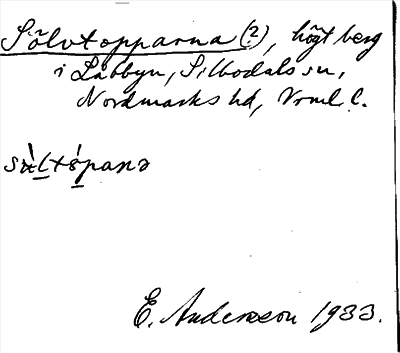 Sölvtopparna (?), högt berg
i Låbbyn, Silbodals sn,
Nordmarks hd, Vrml. l.
sæ̀ltópanə
E. Andersson 1933.